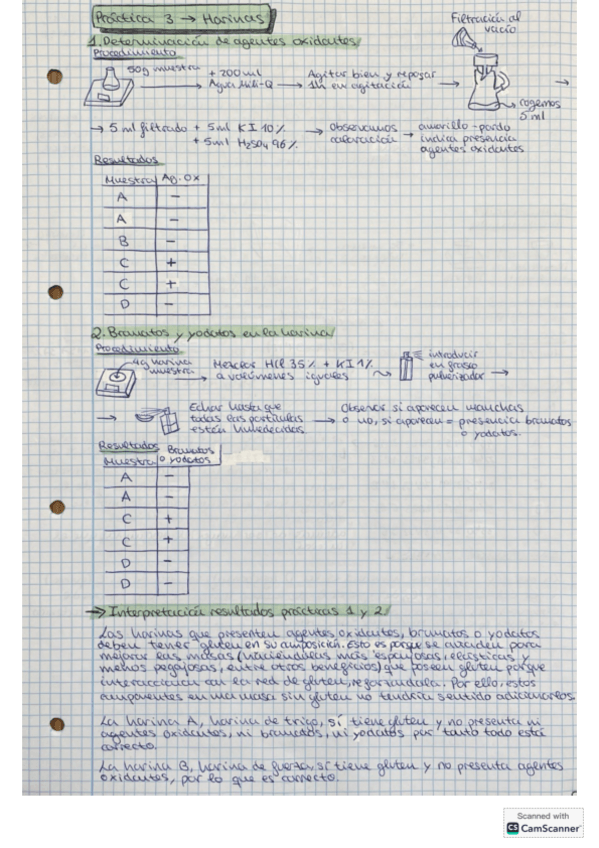 Práctica 3 → Harinas
1. Determinación de agentes oxidantes
Procedimiento
50g muestra
+ 200 ml
Agua Mili-Q
Agitar bien y reposar
1h en agitación
Filtración al
vacío
cogemos
5 ml
→ 5 ml filtrado + 5ml KI 10%
+ 5ml H2SO4 96%
→ Observamos
coloración
→ amarillo-pardo
indica presencia
agentes oxidantes
Resultados
Muestra Ag. Ox
A -
A -
B -
C +
C +
D -
2. Bromatos y yodatos en la harina
Procedimiento
4g harina
muestra
Mezclar HCl 35% + KI 1%
a volúmenes iguales
introducir
en frasco
pulverizador →
→ Echar hasta que
todas las partículas
estén humedecidas
Observar si aparecen manchas
→ o no, si aparecen = presencia bromatos
o yodatos.
Resultados
Muestra Bromatos
o yodatos
A -
A -
C +
C +
D -
D -
→ Interpretación resultados prácticas 1 y 2
Las harinas que presenten agentes oxidantes, bromatos o yodatos
deben tener gluten en su composición. Esto es porque se añaden para
mejorar las masas (haciéndolas más esponjosas, elásticas y
menos pegajosas, entre otros beneficios) que poseen gluten porque
interaccionan con la red de gluten, reforzándola. Por ello, estos
componentes en una masa sin gluten no tendría sentido adicionarlos.
La harina A, harina de trigo, sí tiene gluten y no presenta ni
agentes oxidantes, ni bromatos, ni yodatos por tanto todo está
correcto.
La harina B, harina de fuerza, sí tiene gluten y no presenta agentes
oxidantes, por lo que es correcto.
Scanned with
CS CamScanner